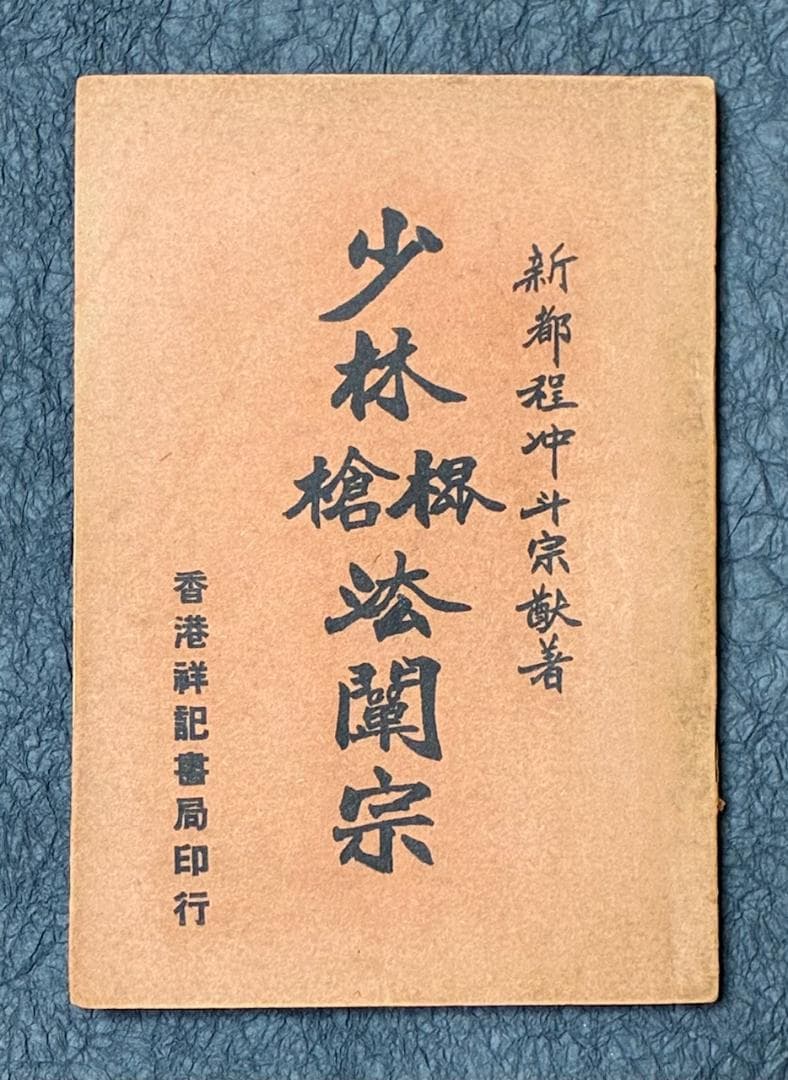 新都程冲斗宗猷著
少林棍槍法闡宗
香港祥記書局印行